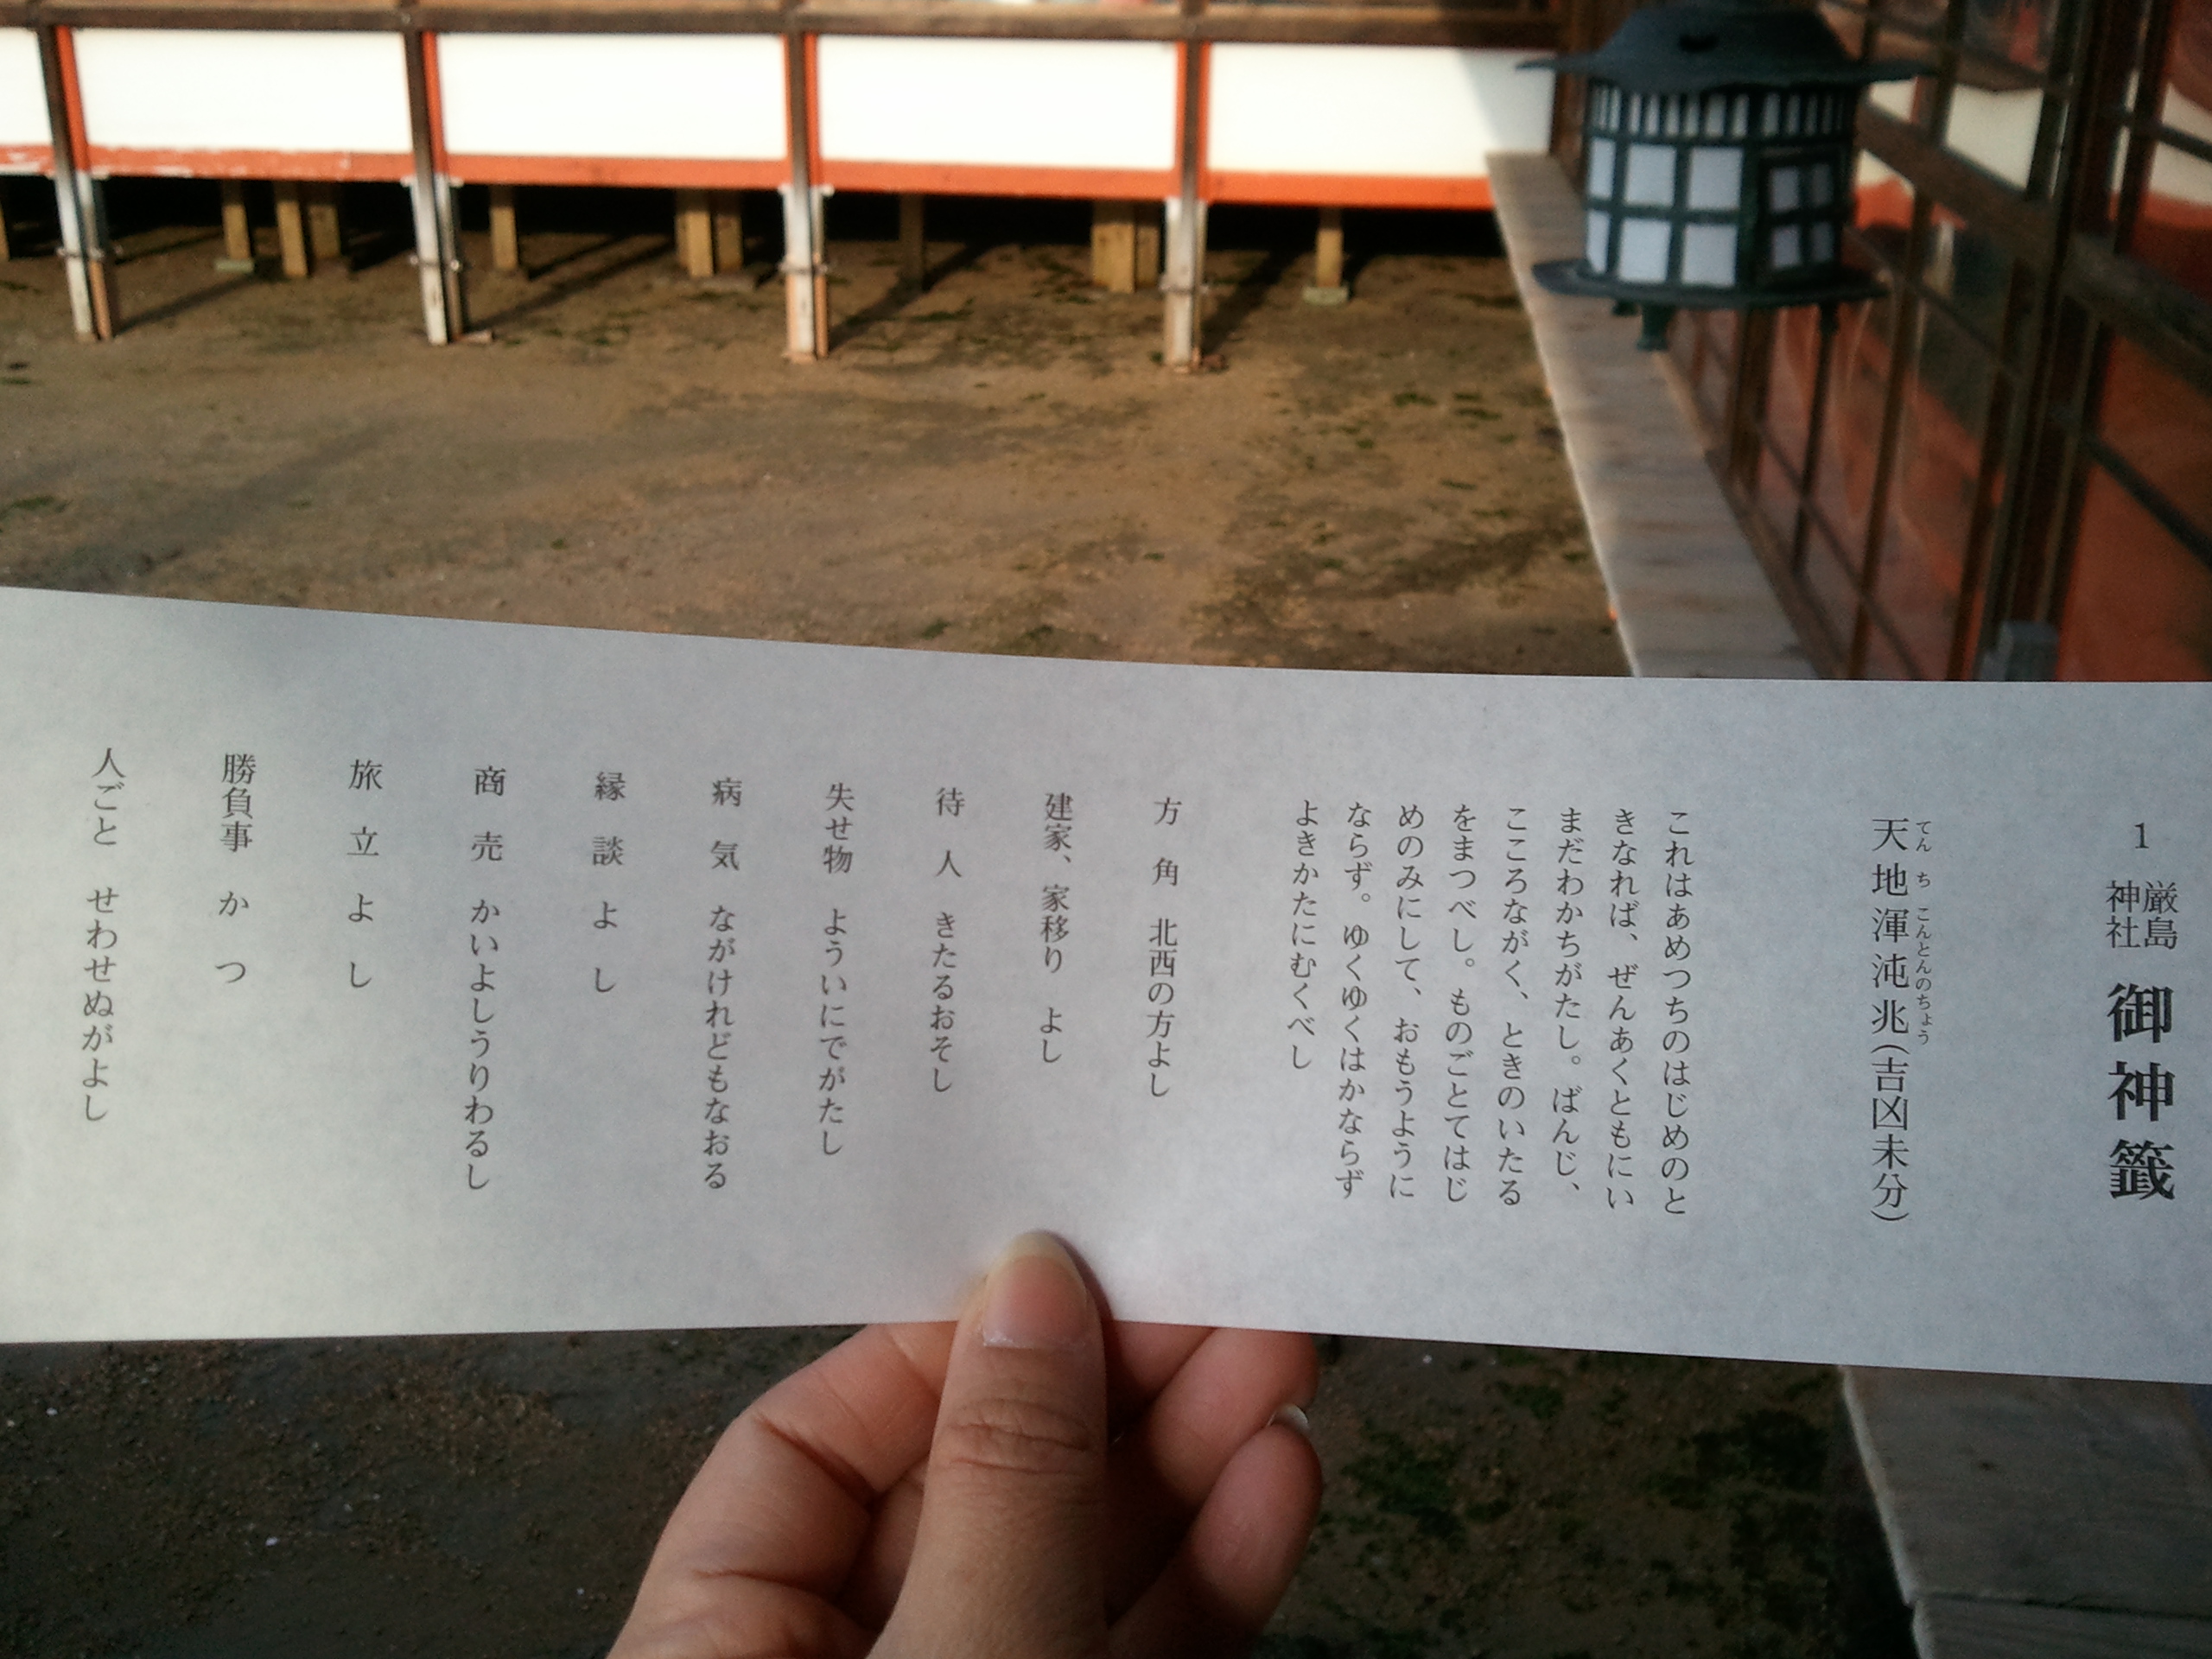 1 厳島神社 御神籤
天地渾沌兆(吉凶未分)
てんちこんとんのちょう
これはあめつちのはじめのと
きなれば、ぜんあくともにい
まだわかちがたし。ばんじ、
こころながく、ときのいたる
をまつべし。ものごとてはじ
めのみにして、おもうように
ならず。ゆくゆくはかならず
よきかたにむくべし
方角 北西の方よし
建家、家移り よし
待人 きたるおそし
失せ物 よういにでがたし
病気 ながけれどもなおる
縁談 よし
商売 かいよしうりわるし
旅立 よし
勝負事 かつ
人ごと せわせぬがよし